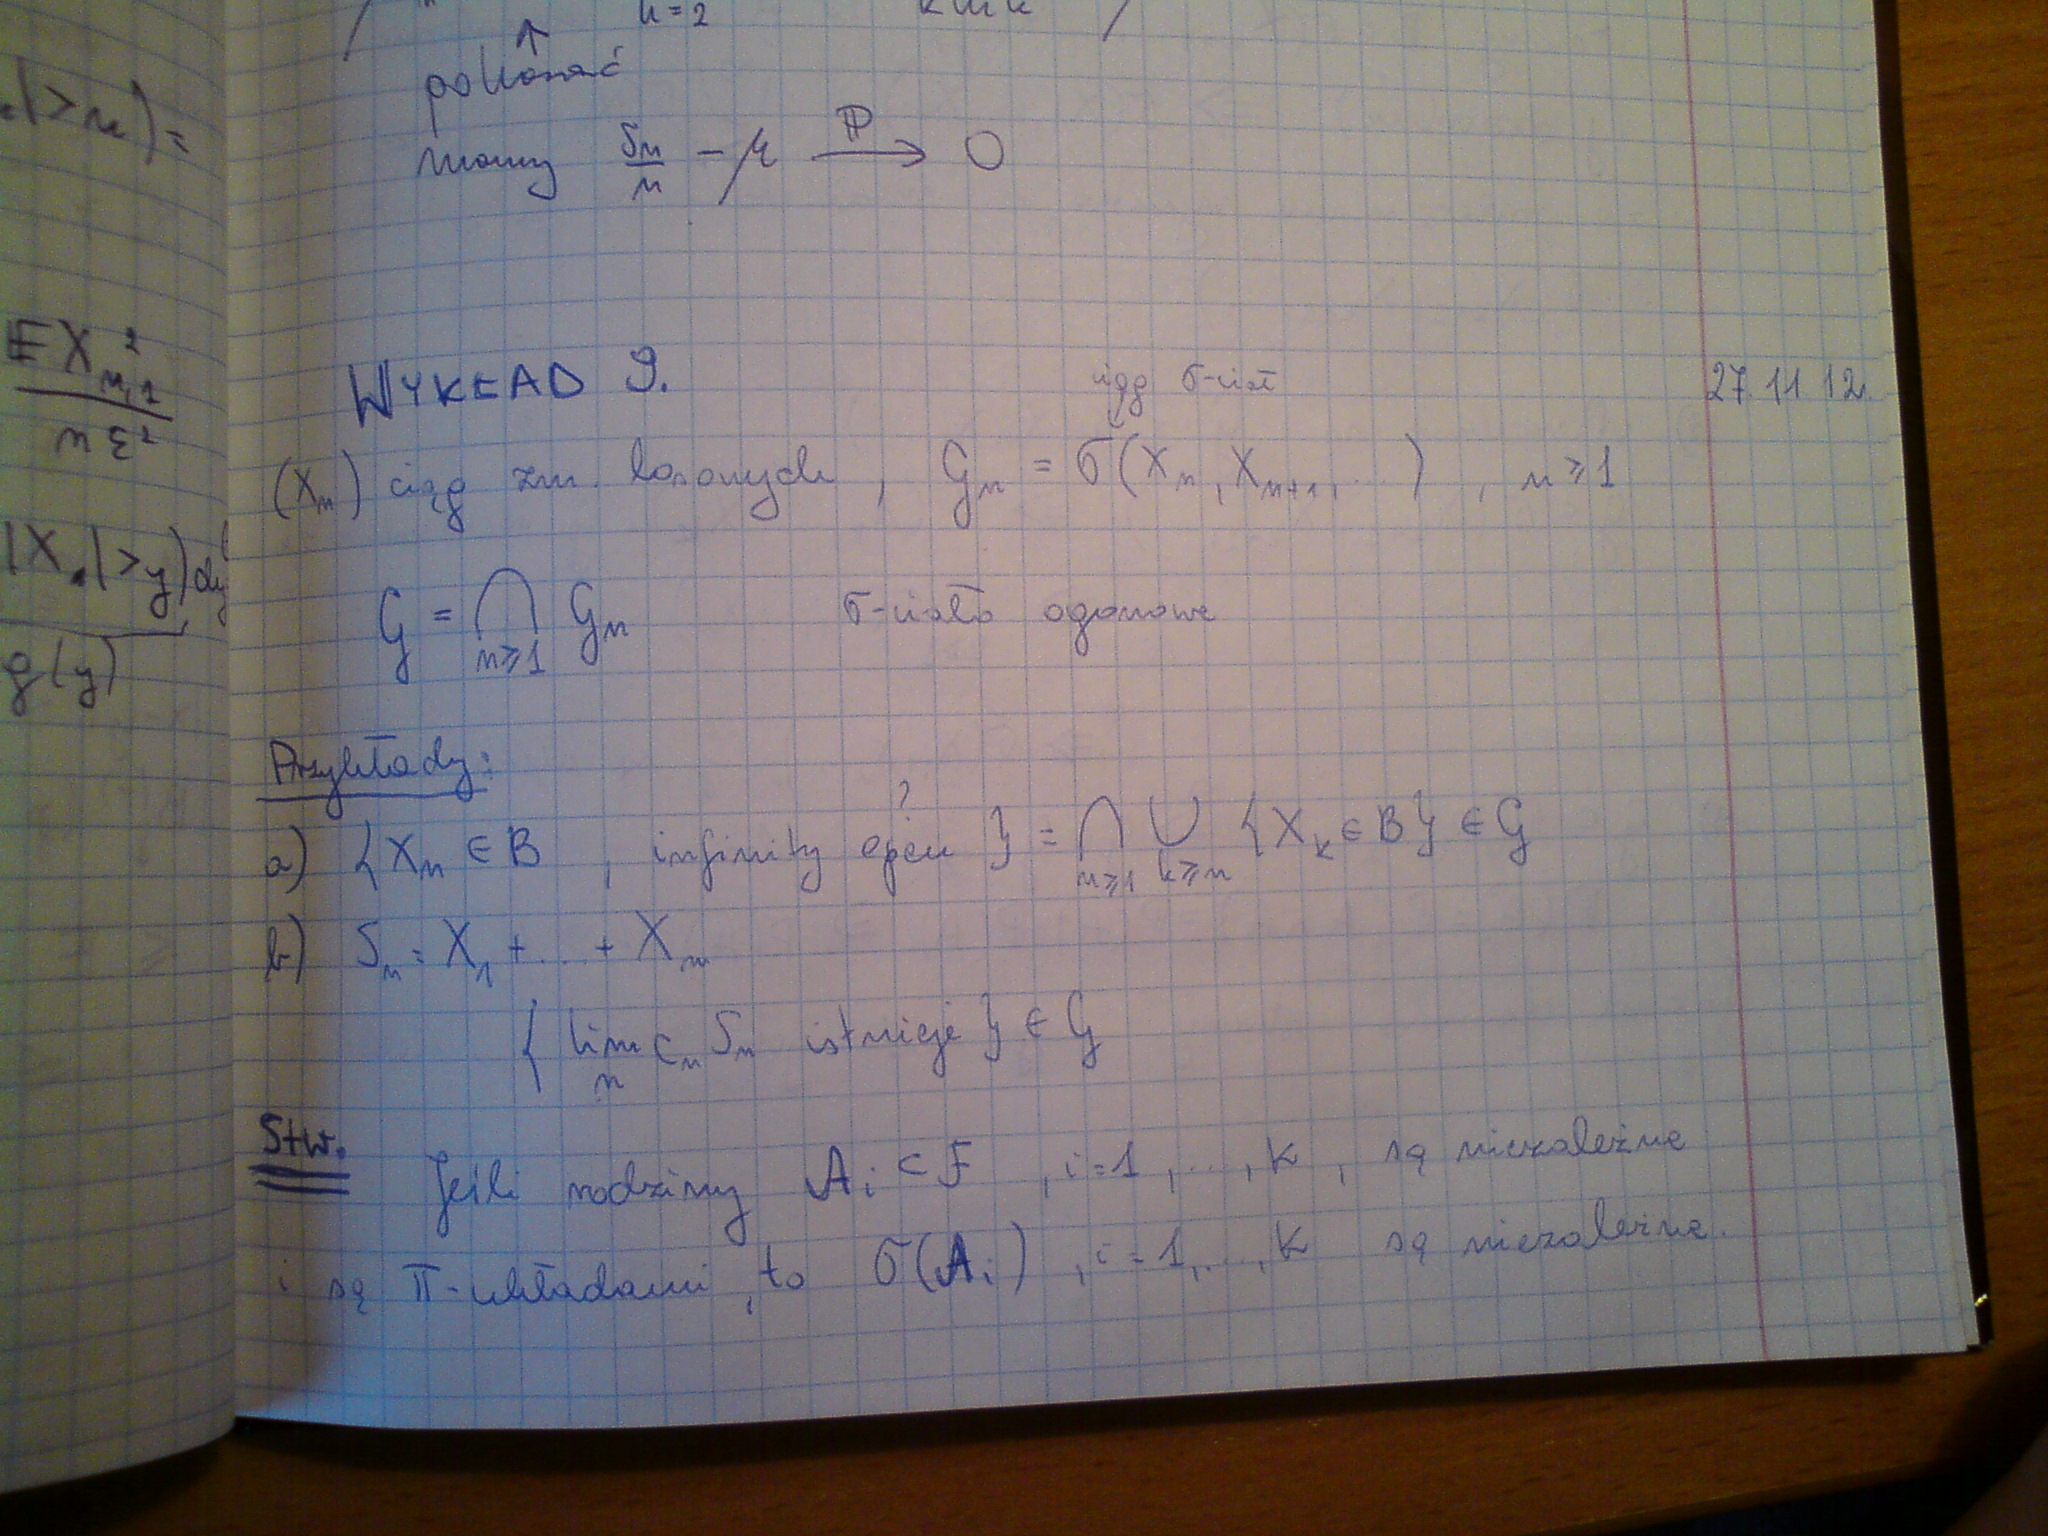 |>n) =
E X²ₙ,₁
n ε²
|X₁|>y) dy
g(y)
k=2
↑
pokazać
mamy Sₙ/n − μ →ᴾ 0
WYKŁAD 9.
27.11.12.
ciąg σ-ciał
(Xₙ) ciąg zm. losowych , Gₙ = σ(Xₙ, Xₙ₊₁, ...) , n ≥ 1
G = ⋂ₙ≥₁ Gₙ σ-ciało ogonowe
Przykłady:
?
a) {Xₙ ∈ B , infinity open } = ⋂ₙ≥₁ ⋃ₖ≥ₙ {Xₖ ∈ B} ∈ G
b) Sₙ = X₁ + ... + Xₙ
{ limₙ cₙ Sₙ istnieje } ∈ G
Stw.
Jeśli rodziny Aᵢ ⊂ F , i=1, ..., k , są niezależne
i są π-układami , to σ(Aᵢ) , i=1, ..., k są niezależne.